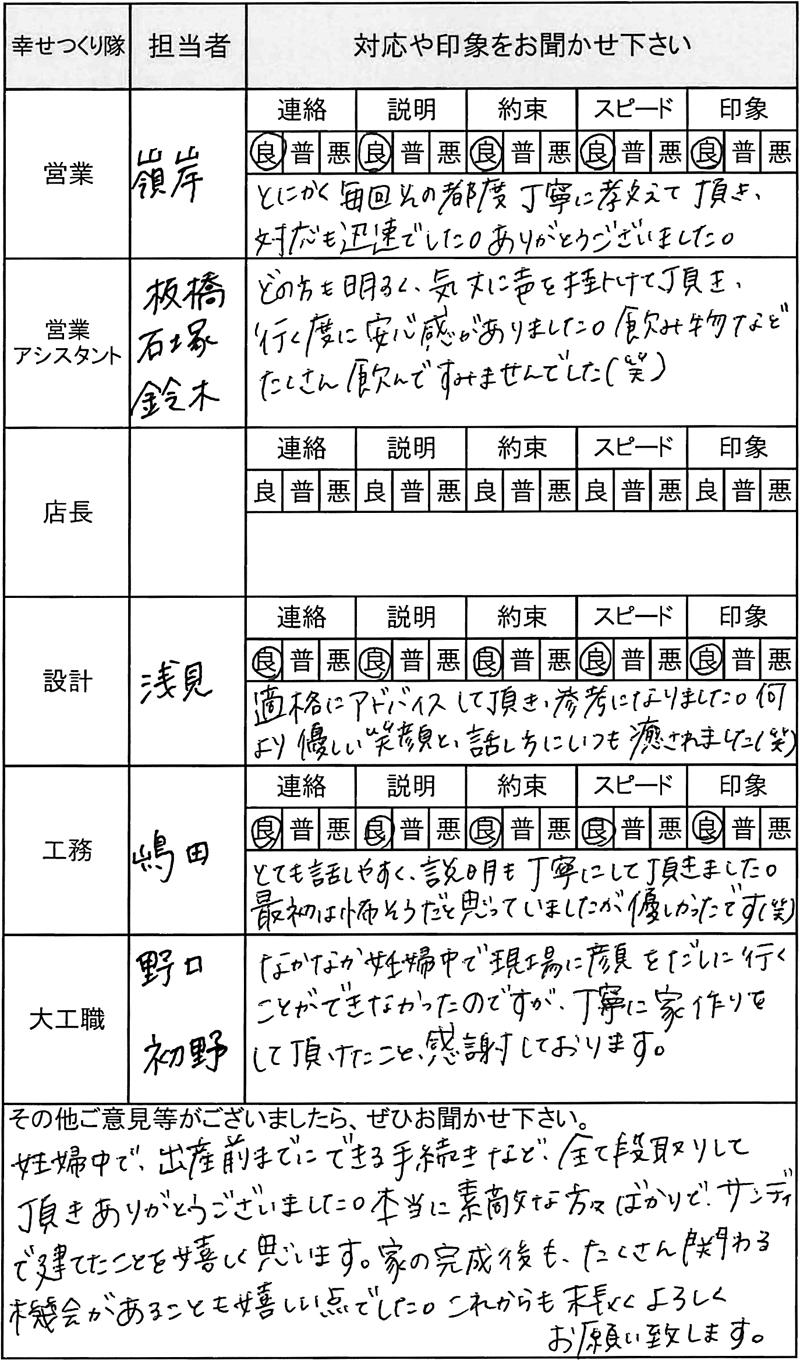 幸せつくり隊 担当者 対応や印象をお聞かせ下さい
連絡 説明 約束 スピード 印象
営業 嶺岸 良 普 悪 良 普 悪 良 普 悪 良 普 悪 良 普 悪
とにかく毎回その都度丁寧に教えて頂き、
対応も迅速でした。ありがとうございました。
営業
アシスタント
板橋
石塚
鈴木
どの方も明るく、気丈に声を掛けて頂き、
行く度に安心感がありました。飲み物など
たくさん飲んですみませんでした(笑)
連絡 説明 約束 スピード 印象
店長 良 普 悪 良 普 悪 良 普 悪 良 普 悪 良 普 悪
連絡 説明 約束 スピード 印象
設計 浅見 良 普 悪 良 普 悪 良 普 悪 良 普 悪 良 普 悪
適格にアドバイスして頂き、参考になりました。何
より優しい笑顔と、話し方にいつも癒されました(笑)
連絡 説明 約束 スピード 印象
工務 嶋田 良 普 悪 良 普 悪 良 普 悪 良 普 悪 良 普 悪
とても話しやすく、説明も丁寧にして頂きました。
最初は怖そうだと思っていましたが優しかったです(笑)
大工職
野口
初野
なかなか妊婦中で現場に顔をだしに行く
ことができなかったのですが、丁寧に家作りを
して頂けたこと、感謝しております。
その他ご意見等がございましたら、ぜひお聞かせ下さい。
妊婦中で、出産前までにできる手続きなど、全て段取りして
頂きありがとうございました。本当に素敵な方々ばかりで、サンディ
で建てたことを嬉しく思います。家の完成後も、たくさん関わる
機会があることも嬉しい点でした。これからも末長くよろしく
お願い致します。